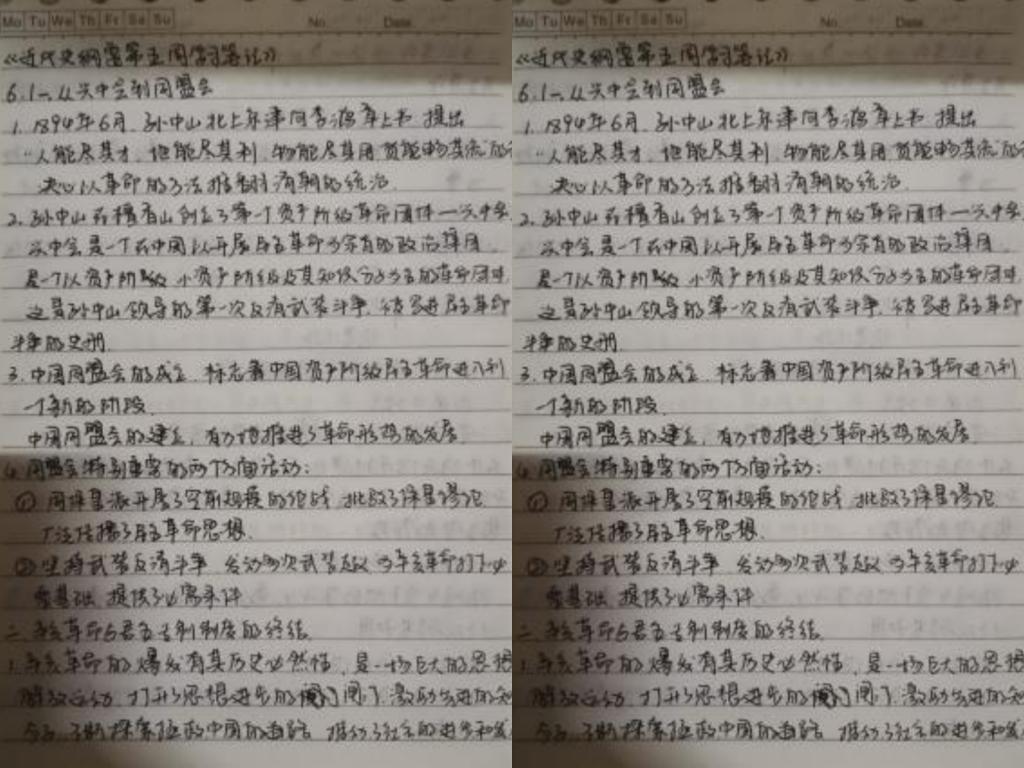 Mo Tu We Th Fr Sa Su No. Date.
《近代史纲要第五周学习笔记》
6.1一、从兴中会到同盟会
1. 1894年6月, 孙中山北上天津向李鸿章上书 提出
"人能尽其才, 地能尽其利, 物能尽其用 货能畅其流"的
决心以革命的方法推翻清朝的统治.
2. 孙中山在檀香山创立了第一个资产阶级革命团体—兴中会
兴中会是一个在中国以开展民主革命为宗旨的政治集团
是一个以资产阶级 小资产阶级及其知识分子为主的革命团体
这是孙中山领导的第一次反清武装斗争, 被写进民主革命
斗争的史册.
3. 中国同盟会的成立, 标志着中国资产阶级民主革命进入到
一个新的阶段.
中国同盟会的建立, 有力地推进了革命形势的发展.
4. 同盟会特别重要的两个方面活动:
① 同保皇派开展了空前规模的论战, 批驳了保皇谬论
广泛传播了民主革命思想.
②坚持武装反清斗争 发动多次武装起义 为辛亥革命打下必
要基础 提供了必需条件
二. 辛亥革命与君主专制制度的终结.
1. 辛亥革命的爆发有其历史必然性, 是一场巨大的思想
解放运动, 打开了思想进步的闸门 激励先进的知
不断探索拯救中国的道路 推动了社会的进步和发